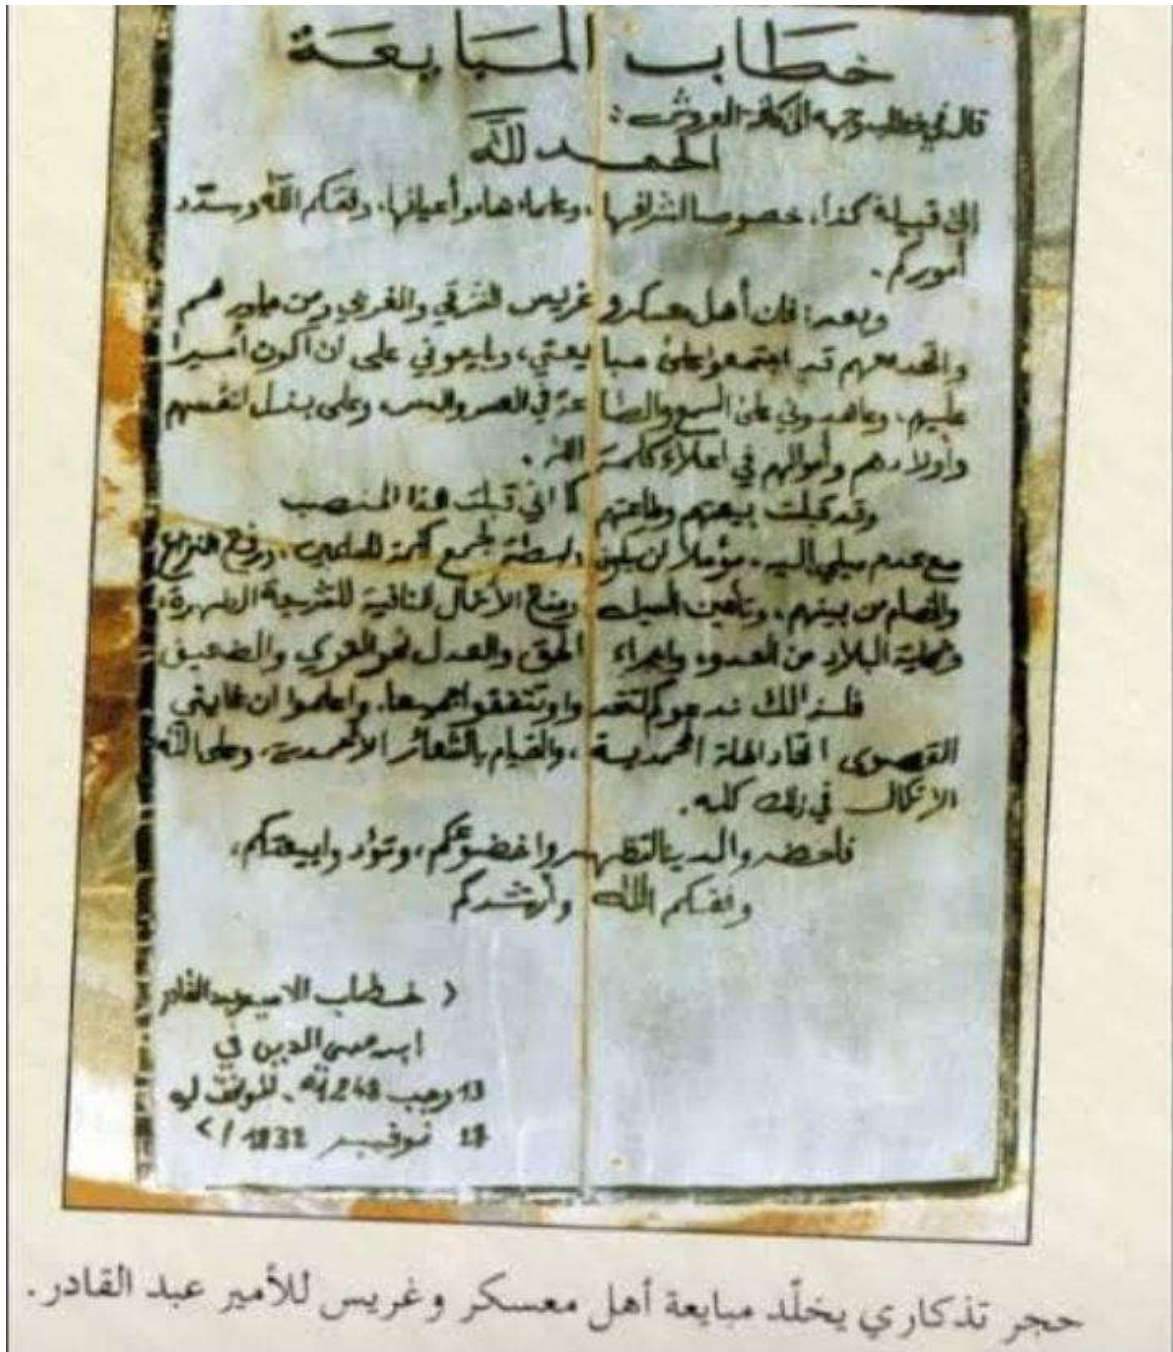 خطاب المبايعة
قال في خطاب وجهه إلى كافة العروش :
الحمد لله
إلى قبيلة كذا، خصوصا أشرافها، وعلماءها وأعيانها، وفقكم الله وسدد
أموركم .
وبعد : فان أهل معسكر و غريس الشرقي والغربي ومن جاورهم
واتحد معهم قد اجتمعوا على مبايعتي، وبايعوني على ان أكون أميرا
عليهم، وعاهدوني على السمع والطاعة في العسر واليسر وعلى بذل انفسهم
وأولادهم وأموالهم في اعلاء كلمة الله .
وقد قبلت بيعتهم وطاعتهم كما اني قبلت هذا المنصب
مع عدم ميلي اليه، مؤملا ان يكون واسطة لجمع كلمة المسلمين، ورفع النزاع
والخصام من بينهم، وتأمين السبل ومنع الأعمال المنافية للشريعة المطهرة،
وحماية البلاد من العدو، واجراء الحق والعدل نحو القوي والضعيف
فلذالك ندعوكم لتتحدوا وتتفقوا جميعا، واعلموا ان غايتي
القصوى اتحاد الملة المحمدية، والقيام بالشعائر الأحمدية، وعلى الله
الاتكال في ذلك كله .
فاحضروا لدينا لتظهروا خضوعكم، وتؤدوا بيعتكم،
وفقكم الله وأرشدكم
( خطاب الامير عبد القادر
ابن محي الدين في
13 رجب 1248 هـ . الموافق لـ
نوفمبر 1832
حجر تذكاري يخلّد مبايعة أهل معسكر وغريس للأمير عبد القادر.